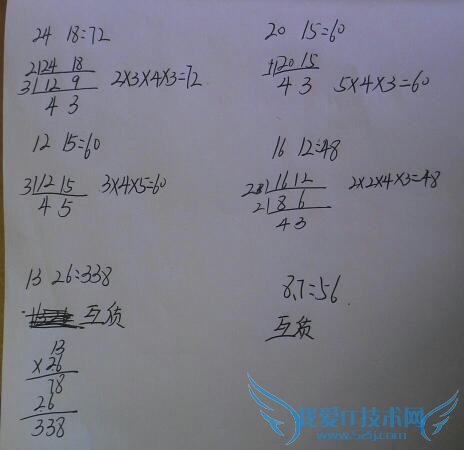 24 18=72
2|24 18
3|12 9
4 3
2×3×4×3=72
20 15=60
20 15
4 3
5×4×3=60
12 15=60
3|12 15
4 5
3×4×5=60
16 12=48
2|16 12
2|8 6
4 3
2×2×4×3=48
13 26=338
互质
13
×26
78
26
338
8、7=56
互质
我爱IT技术网
www.52ij.com